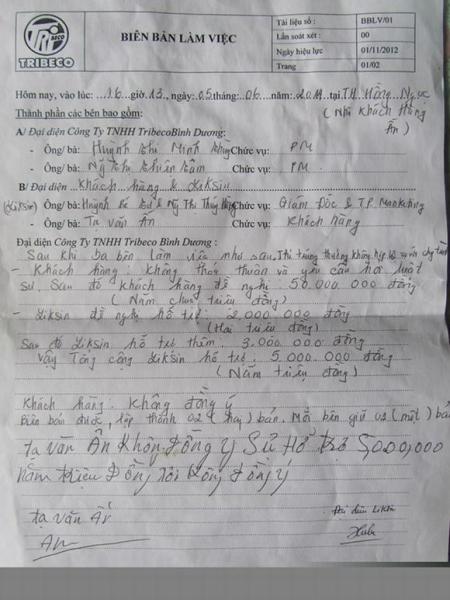 TRI BECO
TRIBECO
BIÊN BẢN LÀM VIỆC
Tài liệu số : BBLV/01
Lần soát xét : 00
Ngày hiệu lực 01/11/2012
Trang 01/02
Hôm nay, vào lúc: 16 giờ 13, ngày: 05 tháng: 06 năm: 2014 tại TH Hồng Ngự
Thành phần các bên bao gồm: (Nhà Khách Hàng
Ẩn)
A/ Đại diện Công Ty TNHH TribecoBình Dương:
- Ông/ bà: Huỳnh Minh Chức vụ: PM
- Ông/ bà: Chức vụ: PM
B/ Đại diện Khách hàng & Liksin
(Liksin) - Ông/ bà: Huỳnh & Thị Thúy Chức vụ: Giám Đốc & T.P. Marketing
- Ông/ bà: Tạ Văn Ẩn Chức vụ: Khách hàng
Đại diện Công Ty TNHH Tribeco Bình Dương :
Sau khi ba bên làm việc như sau. Thì trúng thưởng không hợp lệ
- Khách hàng: không thỏa thuận và yêu cầu luật
sư. Sau đó khách hàng đề nghị: 50.000.000 đồng
(Năm chục triệu đồng)
- Liksin đề nghị hỗ trợ: 2.000.000 đồng
(Hai triệu đồng)
Sau đó Liksin hỗ trợ thêm: 3.000.000 đồng
Vậy Tổng cộng Liksin hỗ trợ: 5.000.000 đồng
(Năm triệu đồng)
Khách hàng: không đồng ý
Biên bản được lập thành 02 (hai) bản. Mỗi bên giữ 01 (một) bả
tạ văn Ẩn Không Đồng Ý Sử Hổ Trợ 5000,000
năm triệu Đồng tôi không Đồng Ý
tạ văn Ẩn
Đại diện Liksin